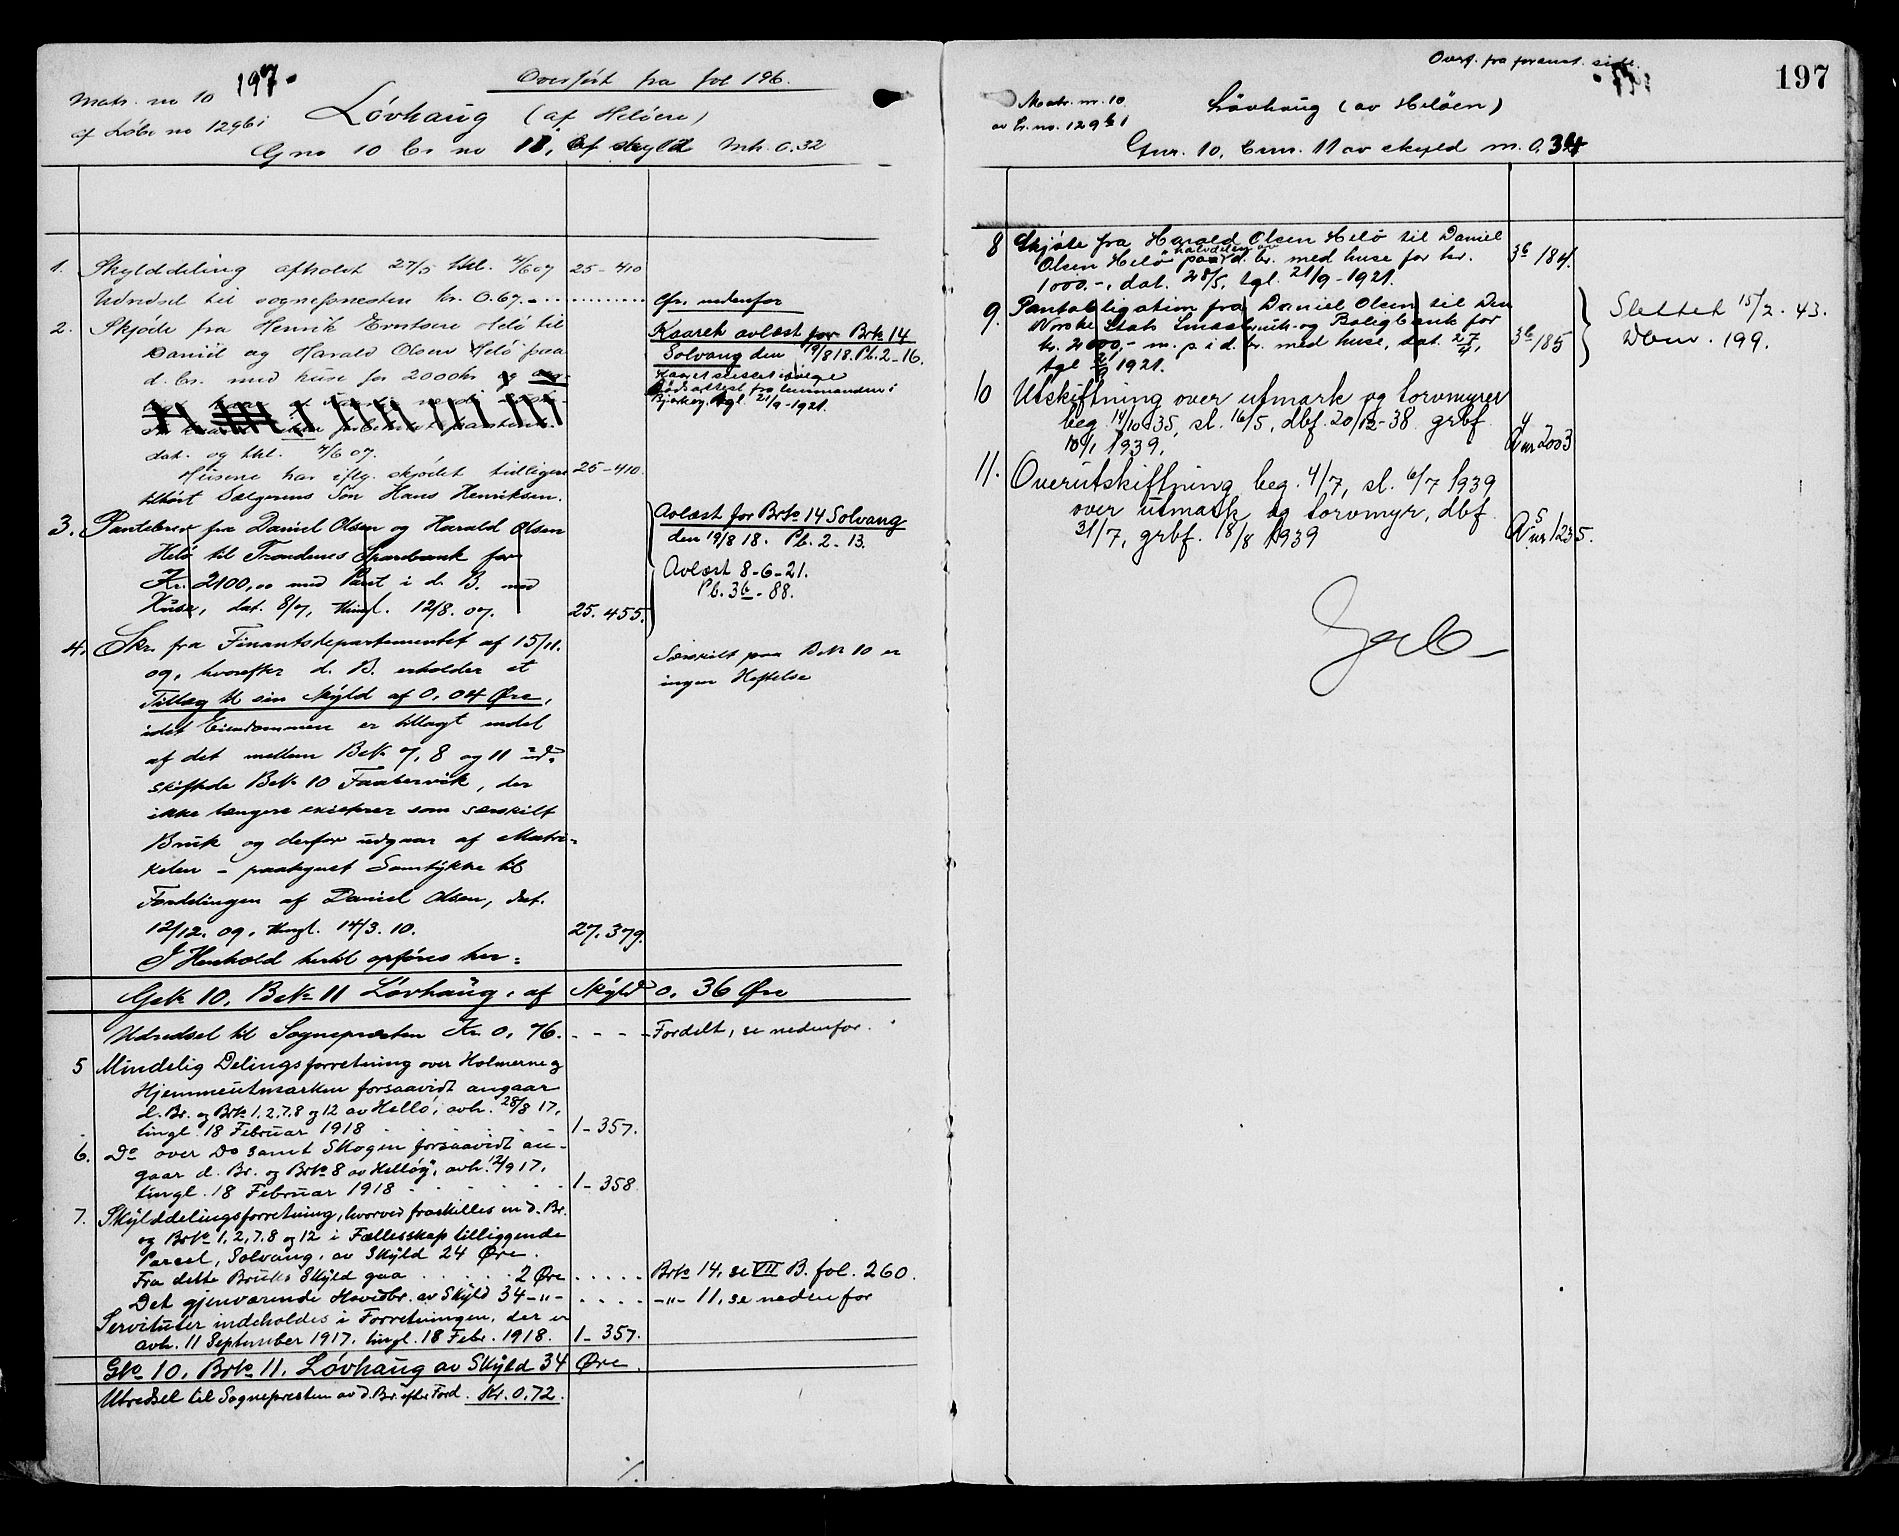 197.
Overført fra fol 196.
Matr. no 10
af Løbe no 1296i
Løvhaug (af Heløen)
Gno 10 br no 11, af skyld Mk. 0.32
1. Skylddeling afholdt 27/5 thl. 4/6 07 25-410
Udredsel til sognepresten kr. 0.67. Cfr. nedenfor
2. Skjøde fra Henrik Heiø til
Daniel og Harald Olsen Helø paa
d. br. med huse for 2000 kr
dat. og thl. 4/6 07.
Husene har iflg. skjødet tidligere 25-410.
tilhørt Sælgerens Søn Hans Henriksen.
Kaaret avlæst for Brno 14
Solvang den 19/8 18. Pb. 2-16.
Kaaret slettet ifølge
dødsattest fra lensmanden i
Bjarkøy. tgl. 21/9-1921.
3. Pantebrev fra Daniel Olsen og Harald Olsen
Helø til Trondenes Sparebank for
Kr. 2100,00 med Pant i d. B. med
Huse, dat. 8/7, thingl. 12/8. 07. 25. 455.
Avlæst for Brno 14 Solvang
den 19/8 18. Pb. 2-13.
Avlæst 8-6-21.
Pb. 36-88.
4. Skr. fra Finantsdepartementet af 15/11.
09, hvorefter d. B. erholder et
Tillæg til sin Skyld af 0,04 Øre,
idet Eiendommen er tillagt endel
af det mellem BNo 7, 8 og 11 ud-
skiftede BNo 10 Faabervik, der
ikke længere existerer som særskilt
Bruk og derfor udgaar af Matri-
kelen - paategnet Samtykke til
Fordelingen af Daniel Olsen, dat.
12/12. 09, thngl. 14/3. 10. 27. 379.
Særskilt paa BNo 10 er
ingen Heftelse
I Henhold hertil opføres her:
GNo 10, BNo 11 Løvhaug, af Skyld 0. 36 Øre
Udredsel til Sognepresten Kr. 0, 76. - - - Fordelt, se nedenfor.
5 Mindelig Delingsforretning over Holmerne og
Hjemmeutmarken forsaavidt angaar
d. Br. og Brno 1, 2, 7, 8 og 12 av Helløi, avh. 28/8 17,
tingl. 18 Februar 1918 1-357.
6. Do over Do samt Skogen forsaavidt an-
gaar d. Br. og Brno 8 av Helløy, avh. 12/9 17,
tingl. 18 Februar 1918 1-358
7. Skylddelingsforretning, hvorved fraskilles en d. Br.
og Brno 1, 2, 7, 8 og 12 i Fællesskap tilliggende
Parcel, Solvang, av Skyld 24 Øre.
Fra dette Bruks Skyld gaa 2 Øre Brno 14, se VII B. fol. 260.
Det gjenværende Hovedbr. av Skyld 34 -"- -"- 11, se nedenfor
Servituter indeholdes i Forretningen, der er
avh. 11 September 1917, tingl. 18 Febr. 1918. 1-357.
Gno 10, Brno 11, Løvhaug av Skyld 34 Øre.
Utredsel til Sognepresten av d. Br. efter Ford. Kr. 0.72.
%
Overf. fra foranst. side.
197
Matr. nr. 10
av L. no. 129 b 1
Løvhaug (av Heløen)
Gnr. 10, bnr. 11 av skyld m. 0,34
8 Skjøte fra Harald Olsen Helø til Daniel
Olsen Helø paa halvdelen av d. br. med huse for kr.
1000.-, dat. 28/5, tgl. 21/9-1921. 36/184.
9. Pantobligation fra Daniel Olsen til Den
Norske Stats Smaabruk- og Boligbank for
kr. 2000,- m. p. i d. br. med huse, dat. 27/4,
tgl 1921. 36/185
Slettet 15/2. 43.
Dbnr. 199.
10 Utskiftning over utmark og torvmyrer
beg. 14/10 35, sl. 16/5, dbf. 20/12-38 grbf.
10/1 1939.
11. Overutskiftning beg. 4/7, sl. 6/7 1939
over utmark og torvmyr, dbf
31/7, grbf. 18/8 1939